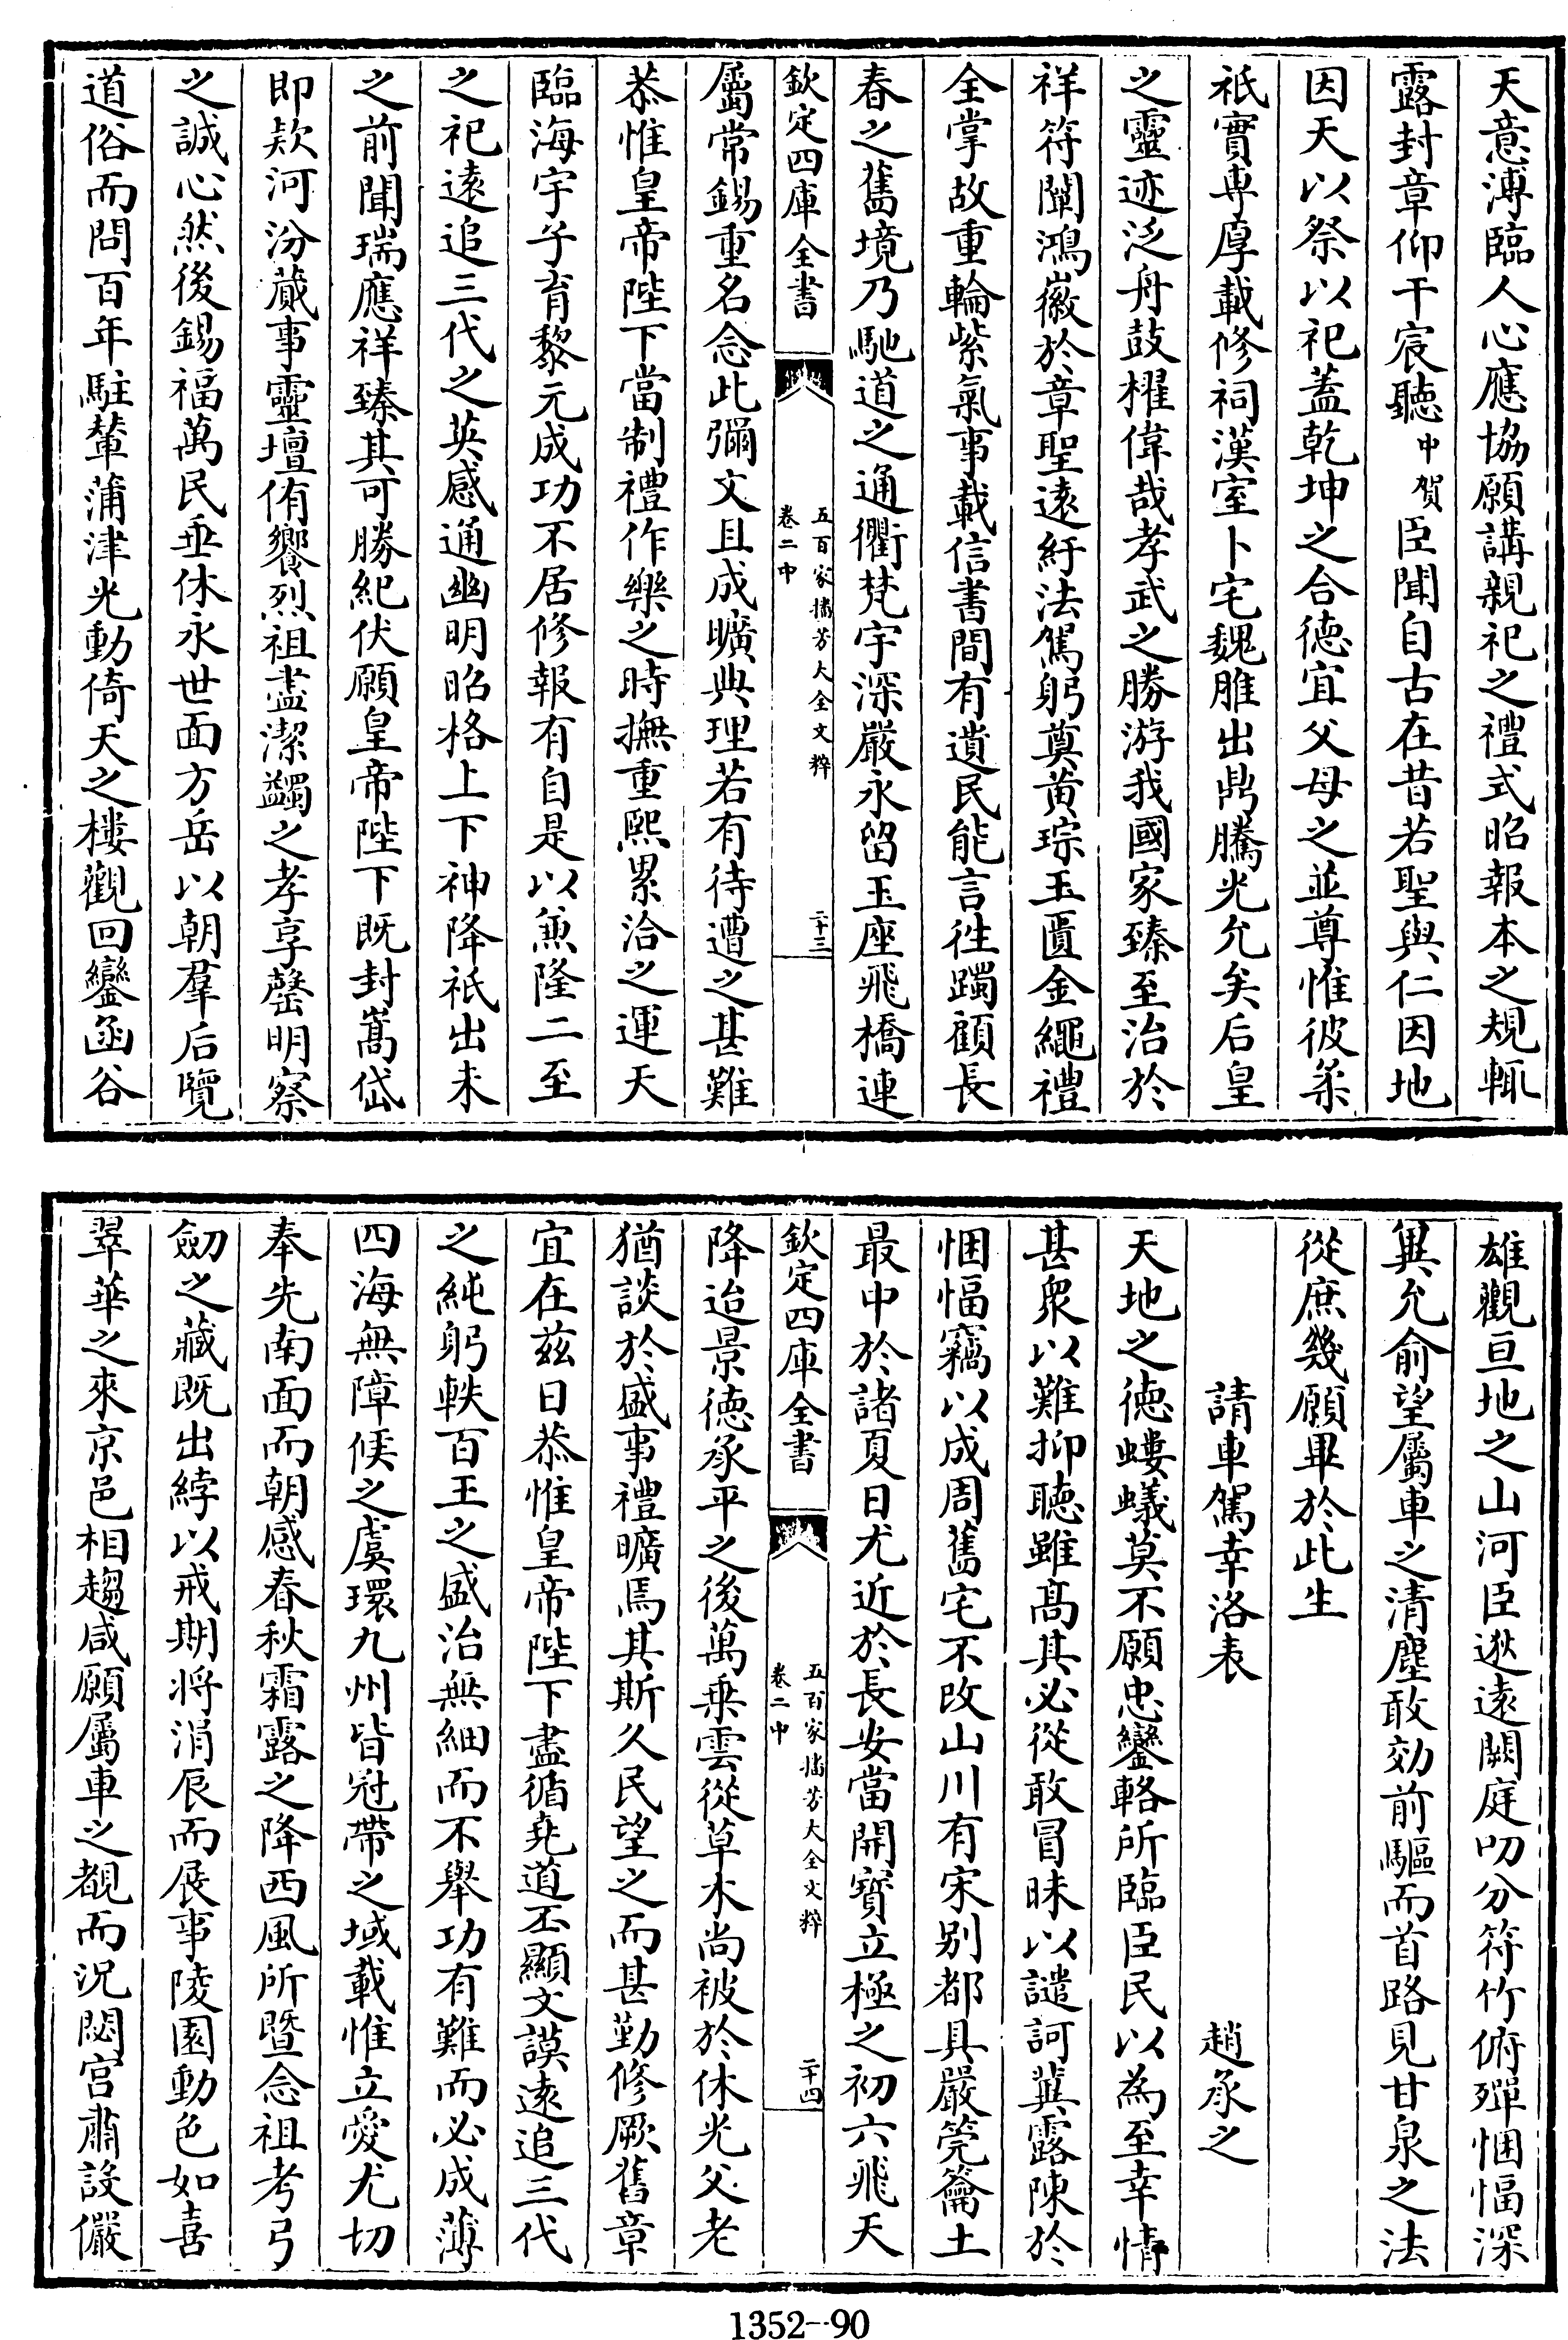 天意溥臨人心應協願講親祀之禮式昭報本之規輒
露封章仰干宸聽中賀臣聞自古在昔若聖與仁因地
因天以祭以祀蓋乾坤之合德宜父母之並尊惟彼柔
祇實專厚載修祠漢室卜宅魏脽出鼎騰光允矣后皇
之靈迹泛舟鼓櫂偉哉孝武之勝游我國家臻至治於
祥符闡鴻徽於章聖遠紆法駕躬奠黄琮玉匱金繩禮
全掌故重輪紫氣事載信書間有遺民能言徃躅顧長
春之舊境乃馳道之通衢梵宇深嚴永留玉座飛橋連
欽定四庫全書
五百家播芳大全文粹
卷二中
二十三
屬常錫重名念此彌文且成曠典理若有待遭之甚難
恭惟皇帝陛下當制禮作樂之時撫重熙累洽之運天
臨海宇子育黎元成功不居修報有自是以兼隆二至
之祀遠追三代之英感通幽明昭格上下神降祇出未
之前聞瑞應祥臻其可勝紀伏願皇帝陛下既封嵩岱
即欵河汾蕆事靈壇侑饗烈祖盡潔蠲之孝享罄明察
之誠心然後錫福萬民垂休永世面方岳以朝羣后覽
道俗而問百年駐輦蒲津光動倚天之樓觀回鑾函谷
雄觀亘地之山河臣逖遠闕庭叨分符竹俯殫悃愊深
兾允俞望屬車之清塵敢効前驅而首路見甘泉之法
從庶幾願畢於此生
請車駕幸洛表 趙承之
天地之德螻蟻莫不願忠鑾輅所臨臣民以為至幸情
甚衆以難抑聽雖髙其必從敢冒昧以譴訶兾露陳於
悃愊竊以成周舊宅不改山川有宋别都具嚴筦籥土
最中於諸夏日尤近於長安當開寳立極之初六飛天
欽定四庫全書
五百家播芳大全文粹
卷二中
二十四
降迨景德承平之後萬乗雲從草木尚被於休光父老
猶談於盛事禮曠焉其斯久民望之而甚勤修厥舊章
宜在兹日恭惟皇帝陛下盡循堯道丕顯文謨遠追三代
之純躬軼百王之盛治無細而不舉功有難而必成薄
四海無障候之虞環九州皆冠帶之域載惟立愛尤切
奉先南面而朝感春秋霜露之降西風所暨念祖考弓
劒之藏既出綍以戒期将涓辰而展事陵園動色如喜
翠華之來京邑相趨咸願屬車之覩而況閟宫肅設儼
1352--90